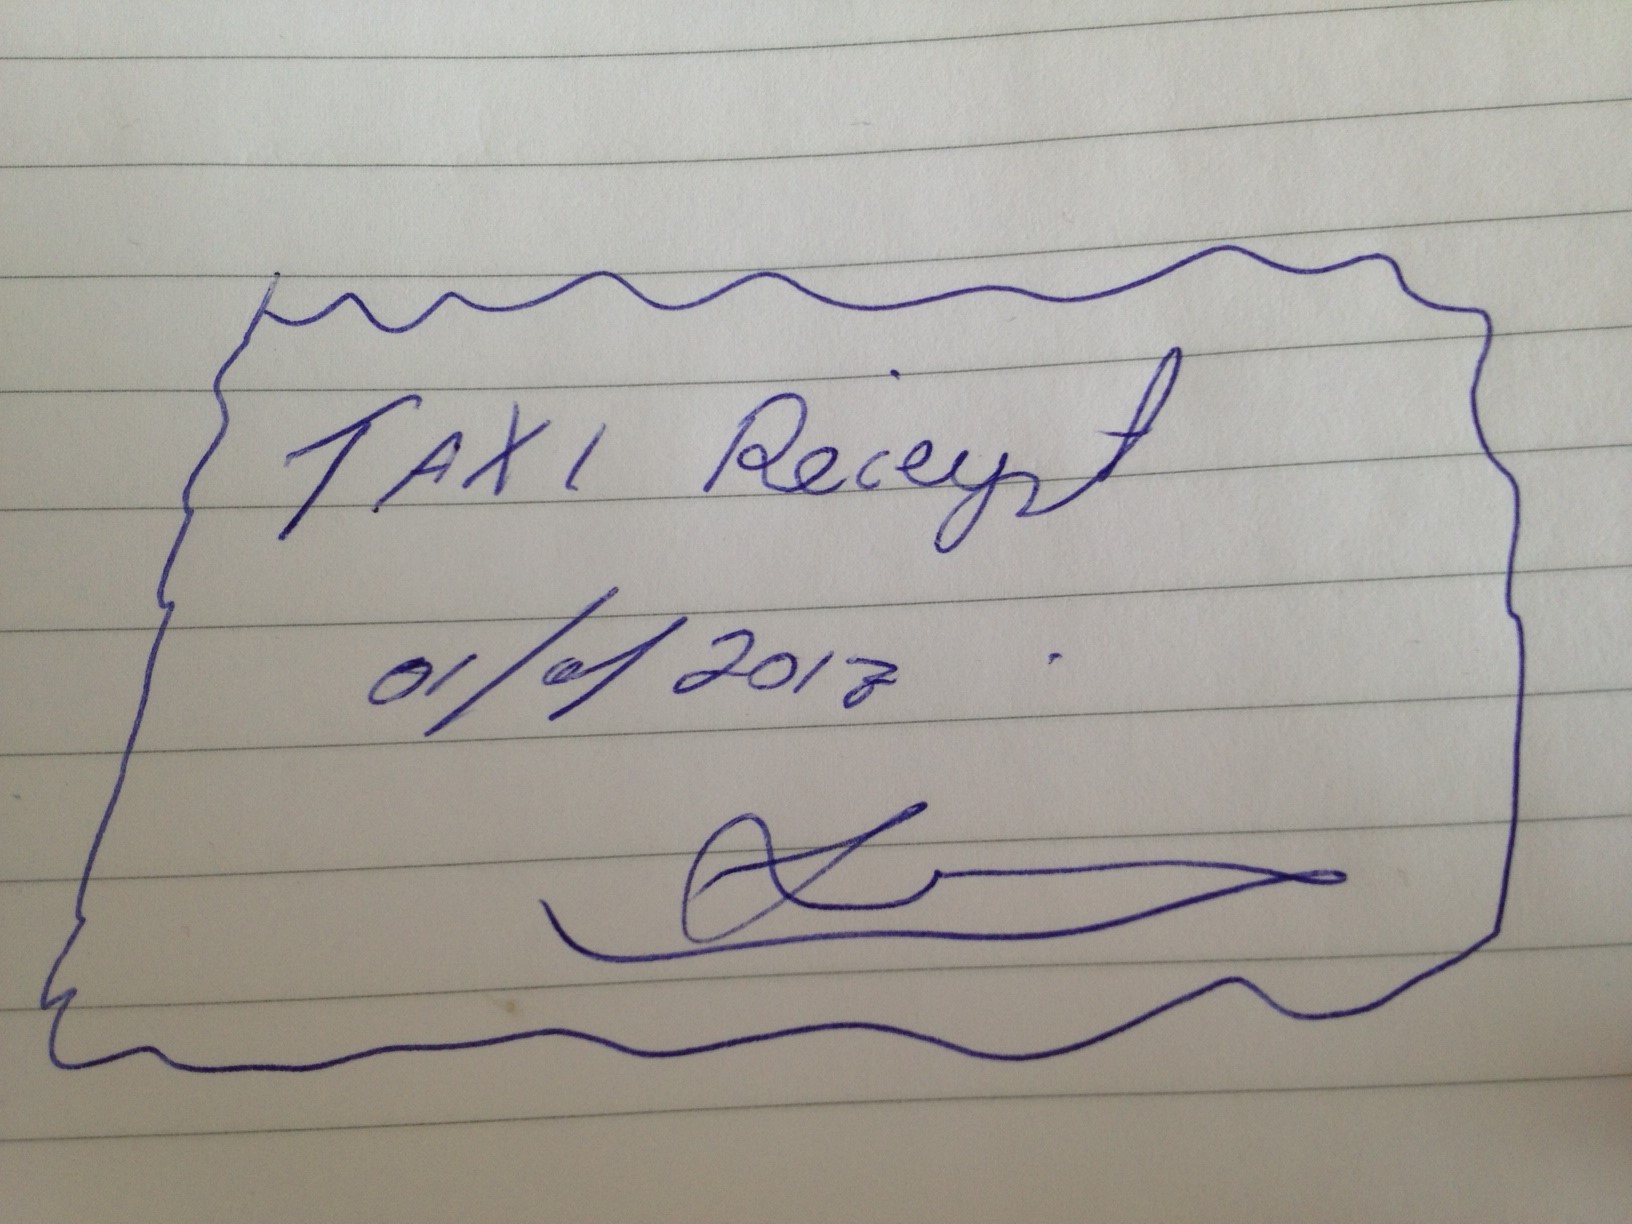 TAXI Recieypt
01/01/2013